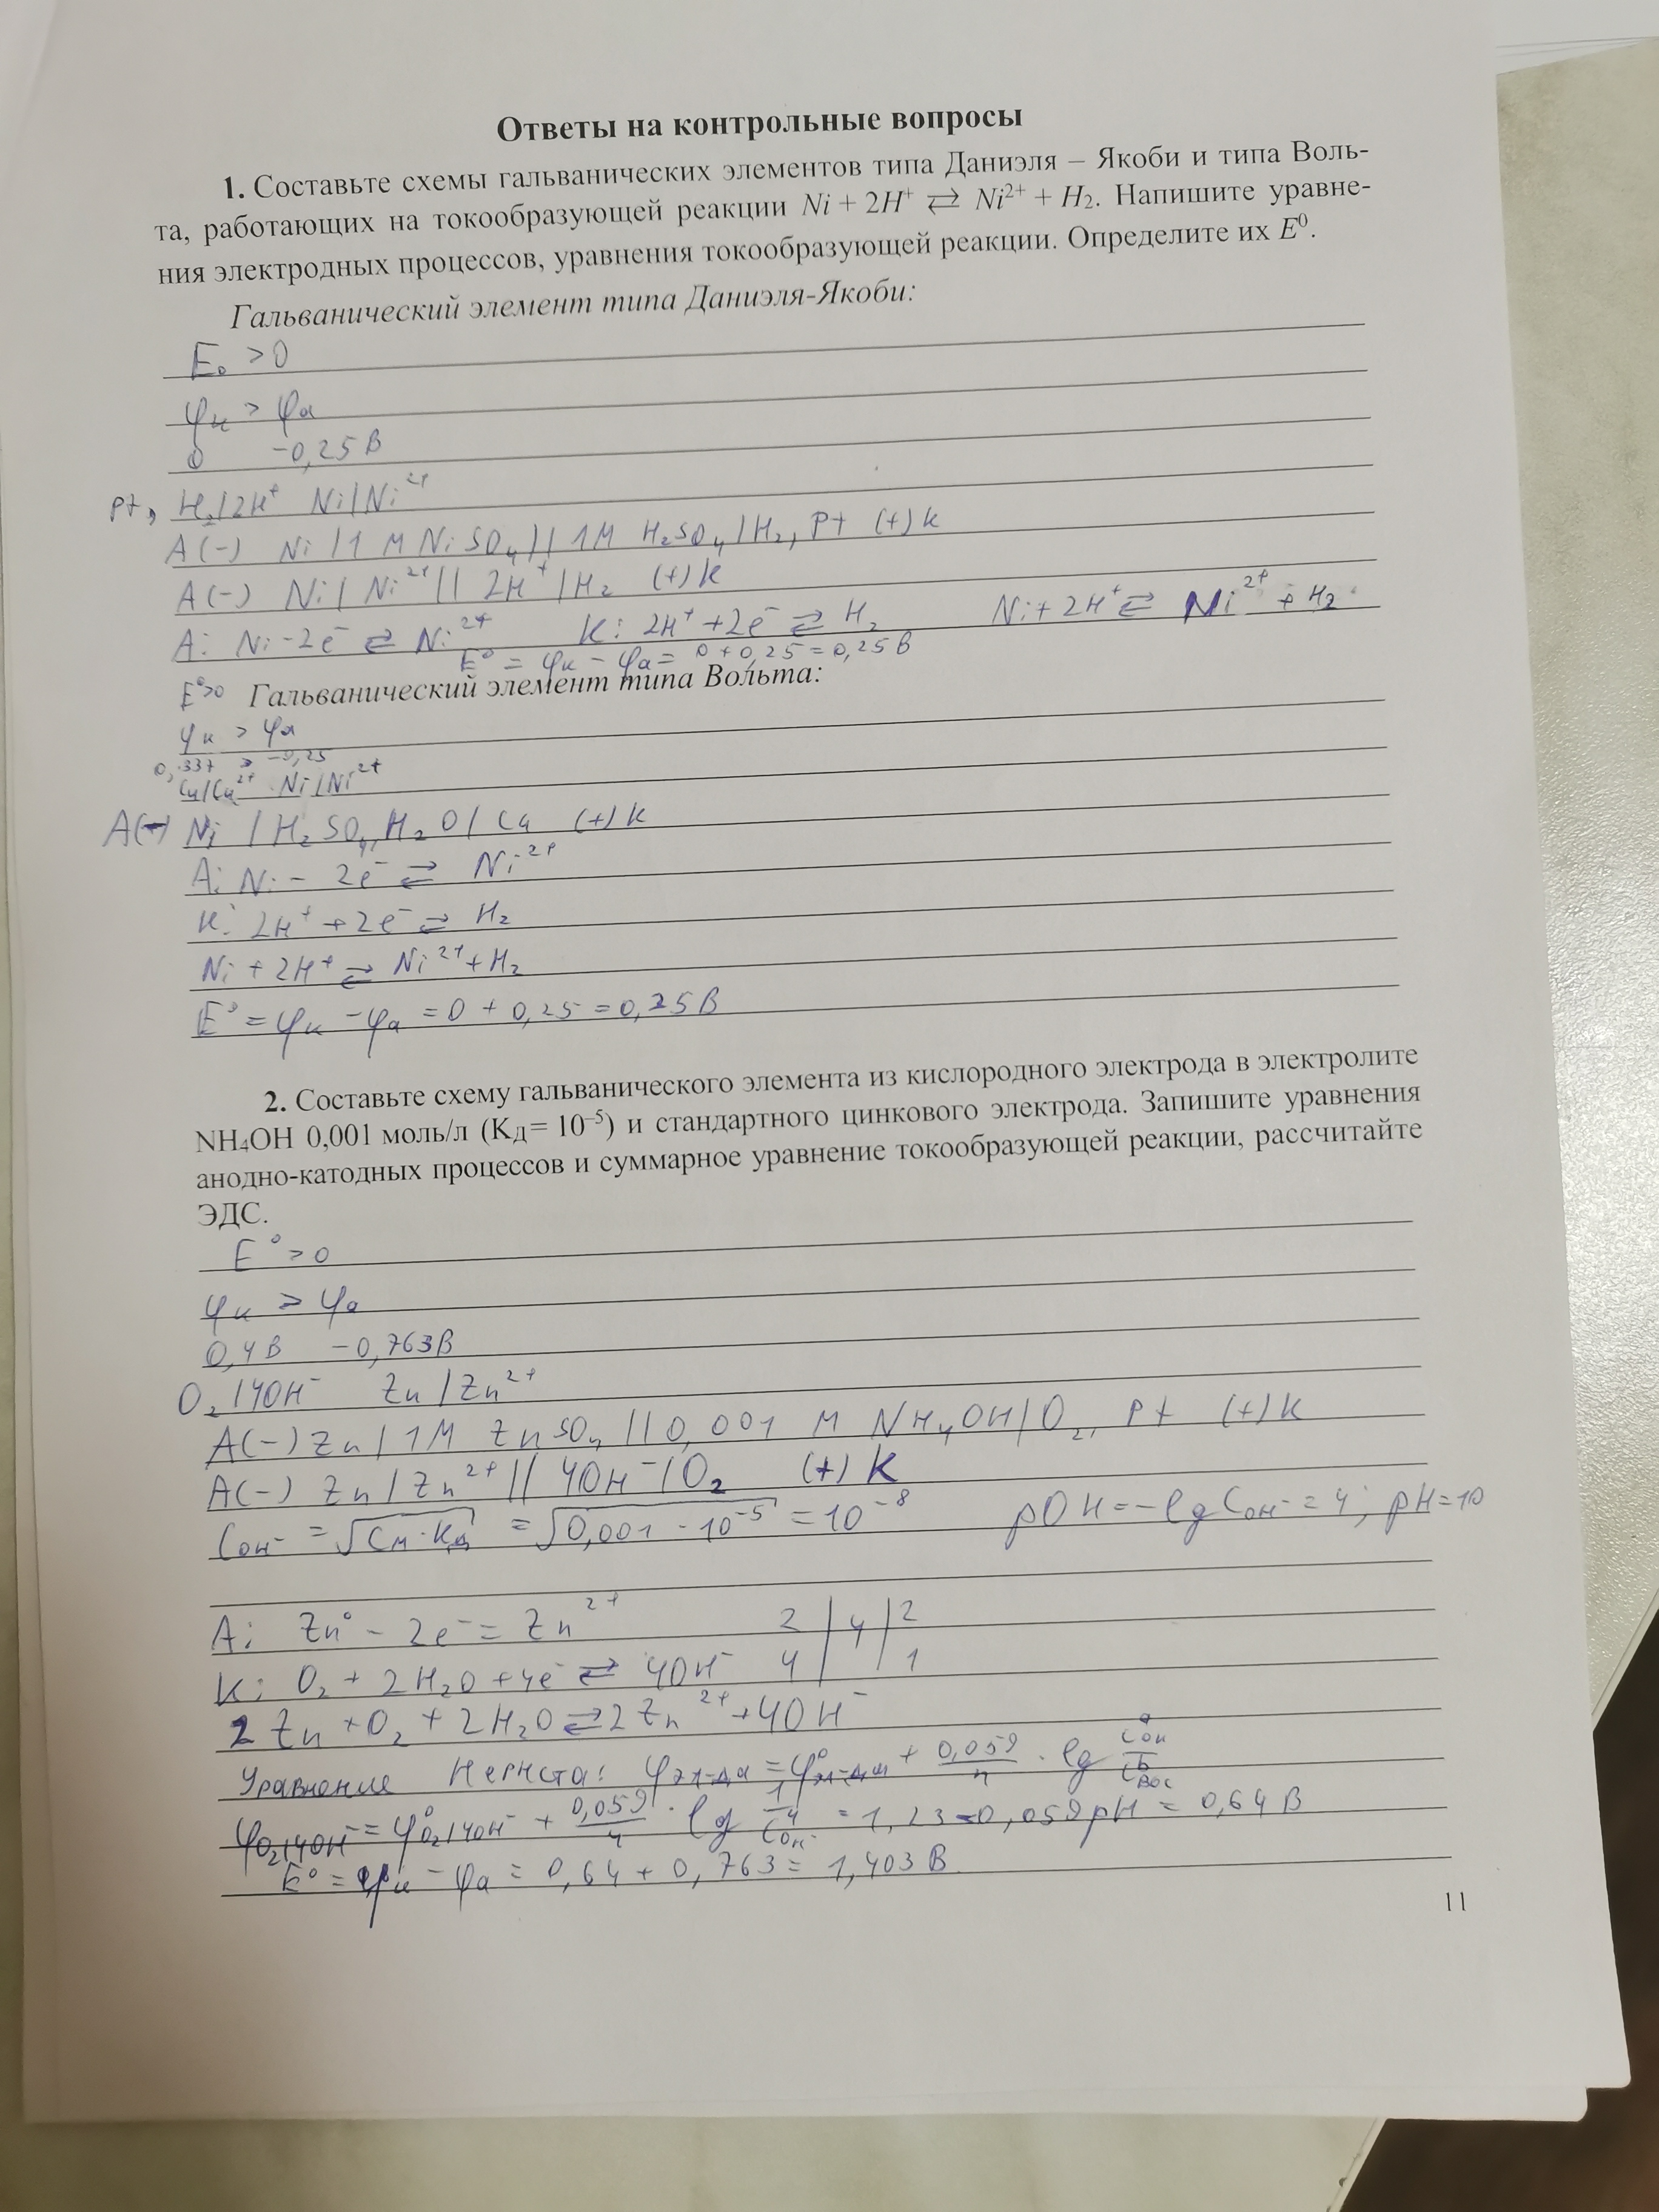 Ответы на контрольные вопросы
1. Составьте схемы гальванических элементов типа Даниэля – Якоби и типа Воль-
та, работающих на токообразующей реакции Ni + 2H⁺ ⇄ Ni²⁺ + H₂. Напишите уравне-
ния электродных процессов, уравнения токообразующей реакции. Определите их E⁰.
Гальванический элемент типа Даниэля-Якоби:
E₀ > 0
φк > φа
0 -0,25 В
Pt, H₂/2H⁺ Ni/Ni²⁺
A(-) Ni / 1 M NiSO₄ // 1M H₂SO₄ / H₂, Pt (+) K
A(-) Ni / Ni²⁺ // 2H⁺ / H₂ (+) K
A: Ni - 2e⁻ ⇄ Ni²⁺ K: 2H⁺ + 2e⁻ ⇄ H₂ Ni + 2H⁺ ⇄ Ni²⁺ + H₂
E⁰ = φк - φа = 0 + 0,25 = 0,25 В
E⁰>0 Гальванический элемент типа Вольта:
φк > φа
0,337 > -0,25
Cu/Cu²⁺ Ni/Ni²⁺
A(-) Ni / H₂SO₄, H₂O / Cu (+) K
A: Ni - 2e⁻ ⇄ Ni²⁺
K: 2H⁺ + 2e⁻ ⇄ H₂
Ni + 2H⁺ ⇄ Ni²⁺ + H₂
E⁰ = φк - φа = 0 + 0,25 = 0,25 В
2. Составьте схему гальванического элемента из кислородного электрода в электролите
NH₄OH 0,001 моль/л (Kд= 10⁻⁵) и стандартного цинкового электрода. Запишите уравнения
анодно-катодных процессов и суммарное уравнение токообразующей реакции, рассчитайте
ЭДС.
E⁰ > 0
φк > φа
0,4В -0,763В
O₂/4OH⁻ Zn/Zn²⁺
A(-) Zn / 1M ZnSO₄ // 0,001 M NH₄OH / O₂, Pt (+) K
A(-) Zn / Zn²⁺ // 4OH⁻ / O₂ (+) K
Cон⁻ = √Cм·Kд = √0,001 · 10⁻⁵ = 10⁻⁸ pOH = -lg Cон⁻ = 4; pH = 10
A: Zn⁰ - 2e⁻ = Zn²⁺ 2 | 4 | 2
K: O₂ + 2H₂O + 4e⁻ ⇄ 4OH⁻ 4 | | 1
2Zn + O₂ + 2H₂O ⇄ 2Zn²⁺ + 4OH⁻
Уравнение Нернста: φэл-да = φ⁰эл-да + 0,059/n · lg Cᵃок/Cᵇвос
φO₂/4OH⁻ = φ⁰O₂/4OH⁻ + 0,059/4 · lg 1/C⁴он⁻ = 1,23-0,059pH = 0,64 В
E⁰ = φк - φа = 0,64 + 0,763 = 1,403 В
11